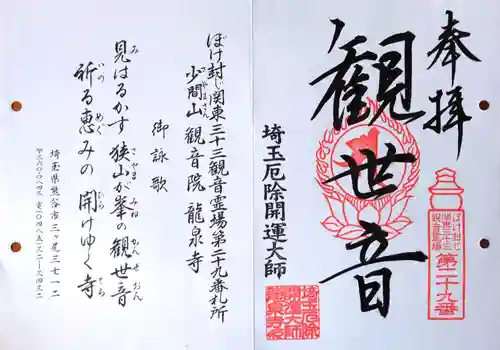 奉拝
観世音
埼玉厄除開運大師
ぼけ封じ
関東三十三
観音霊場
第二十九番
ぼけ封じ関東三十三観音霊場第二十九番札所
少間山 観音院 龍泉寺
御詠歌
見はるかす 狭山が峯の 観世音
祈る恵みの 開けゆく寺
埼玉県熊谷市三ヶ尻三七一二